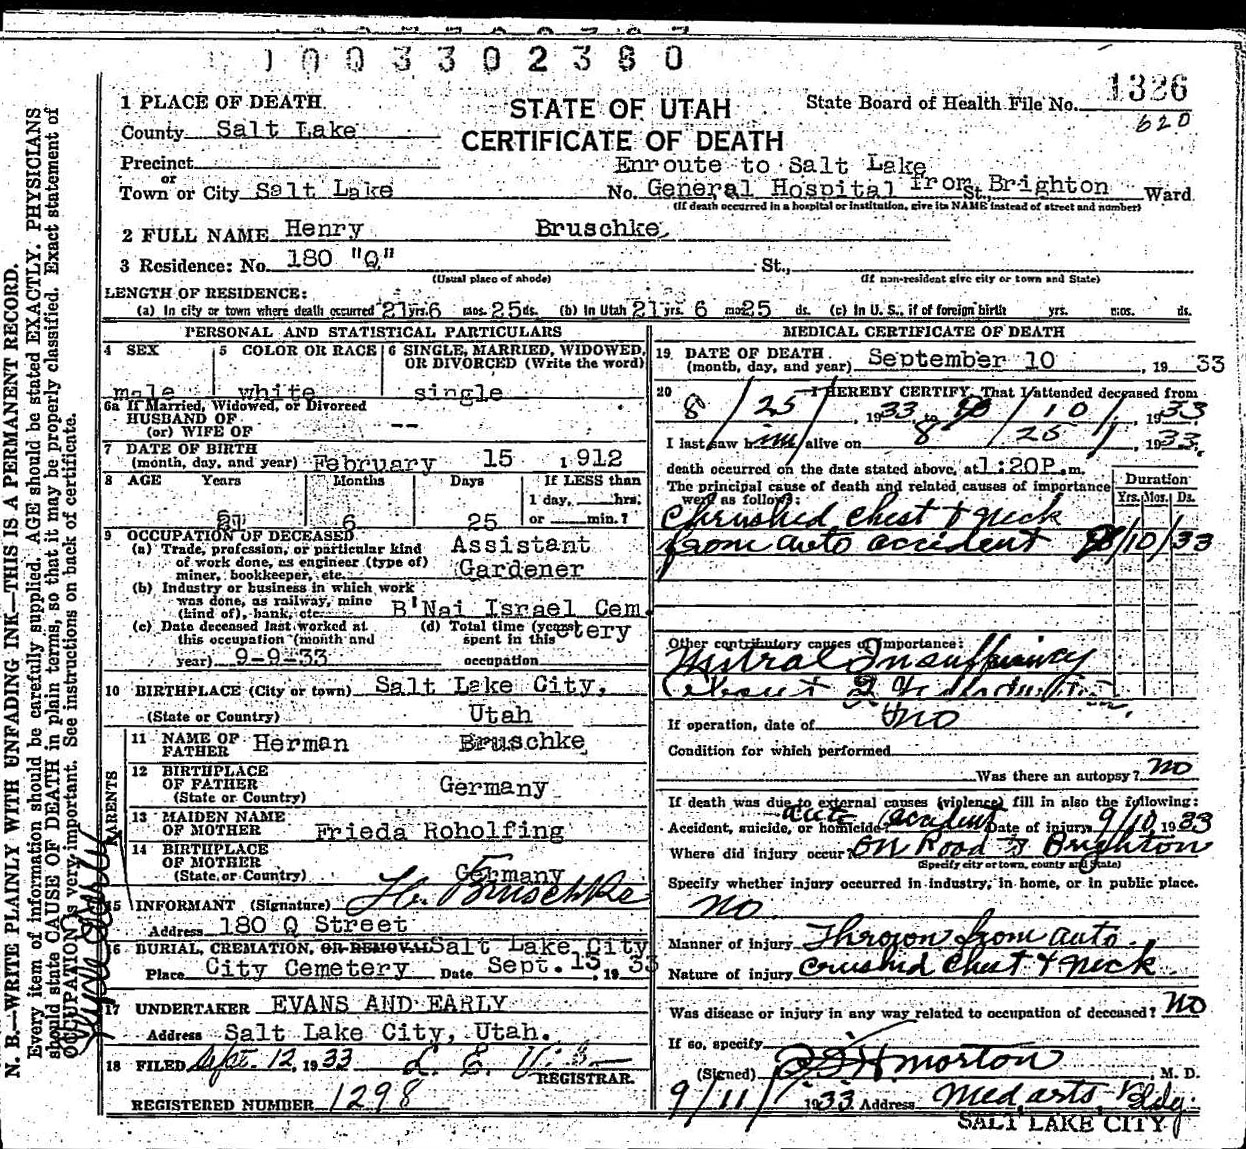 1003302380
1326
620
1 PLACE OF DEATH
STATE OF UTAH
CERTIFICATE OF DEATH
State Board of Health File No.
County Salt Lake
Precinct
or
Town or City Salt Lake
Enroute to Salt Lake
No. General Hospital from St., Brighton Ward
(If death occurred in a hospital or institution, give its NAME instead of street and number)
2 FULL NAME Henry Bruschke
3 Residence: No. 180 "Q" St.,
(Usual place of abode) (If non-resident give city or town and State)
LENGTH OF RESIDENCE:
(a) In city or town where death occurred 21 yrs. 6 mos. 25 ds. (b) In Utah 21 yrs. 6 mos 25 ds. (c) In U. S., if of foreign birth yrs. mos. ds.
PERSONAL AND STATISTICAL PARTICULARS
4 SEX male
5 COLOR OR RACE white
6 SINGLE, MARRIED, WIDOWED, OR DIVORCED (Write the word) single
6a If Married, Widowed, or Divorced
HUSBAND OF
(or) WIFE OF --
7 DATE OF BIRTH
(month, day, and year) February 15 1912
8 AGE Years Months Days If LESS than
1 day, hrs.
21 6 25 or min.?
9 OCCUPATION OF DECEASED
(a) Trade, profession, or particular kind of work done, as engineer (type of) miner, bookkeeper, etc. Assistant Gardener
(b) Industry or business in which work was done, as railway, mine (kind of), bank, etc. B'Nai Israel Cemetery
(c) Date deceased last worked at this occupation (month and year) 9-9-33
(d) Total time (years) spent in this occupation
10 BIRTHPLACE (City or town) Salt Lake City,
(State or Country) Utah
PARENTS
11 NAME OF FATHER Herman Bruschke
12 BIRTHPLACE OF FATHER
(State or Country) Germany
13 MAIDEN NAME OF MOTHER Frieda Roholfing
14 BIRTHPLACE OF MOTHER
(State or Country) Germany
15 INFORMANT (Signature) H. Bruschke
Address 180 Q Street
16 BURIAL, CREMATION, OR REMOVAL Salt Lake City
Place City Cemetery Date Sept. 13, 1933
17 UNDERTAKER EVANS AND EARLY
Address Salt Lake City, Utah.
18 FILED Sept. 12, 1933
REGISTRAR.
REGISTERED NUMBER 1298
MEDICAL CERTIFICATE OF DEATH
19 DATE OF DEATH
(month, day, and year) September 10, 1933
20 I HEREBY CERTIFY, That I attended deceased from
8/25/, 1933, to 9/10/, 1933
I last saw him alive on 8/25/, 1933,
death occurred on the date stated above, at 1:20P.m.
The principal cause of death and related causes of importance were as follows:
Duration
Yrs. Mos. Ds.
Chrushed chest & neck
from auto accident 9/10/33
Other contributory causes of importance:
Mitral Insufficiency
If operation, date of no
Condition for which performed
Was there an autopsy? no
If death was due to external causes (violence) fill in also the following:
Accident, suicide, or homicide? auto accident Date of injury 9/10 1933
Where did injury occur? On Road to Brighton
(Specify city or town, county and State)
Specify whether injury occurred in industry, in home, or in public place.
no
Manner of injury Thrown from auto
Nature of injury Crushed Chest & neck
Was disease or injury in any way related to occupation of deceased? no
If so, specify
(Signed) Morton M. D.
9/11/ 1933 Address Med arts Bldg.
SALT LAKE CITY
N. B.—WRITE PLAINLY WITH UNFADING INK—THIS IS A PERMANENT RECORD.
Every item of information should be carefully supplied. AGE should be stated EXACTLY. PHYSICIANS
should state CAUSE OF DEATH in plain terms, so that it may be properly classified. Exact statement of
OCCUPATION is very important. See instructions on back of certificate.